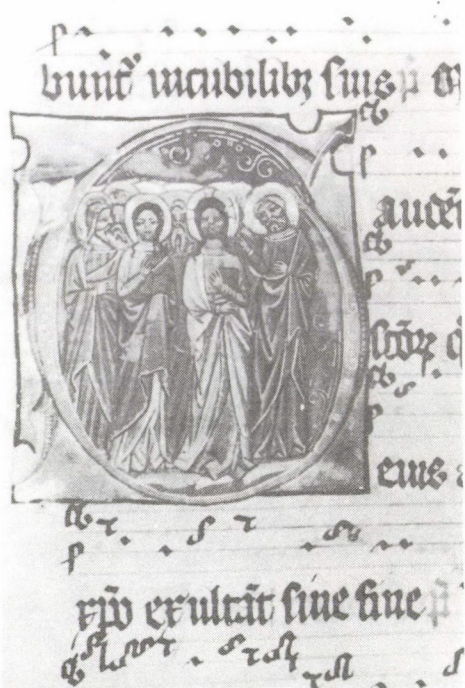 bunt᷑ incubilibꝫ suis p̄
auden
sc̄oꝝ q̄
eius a
xp̄o exultāt sine fine p̄